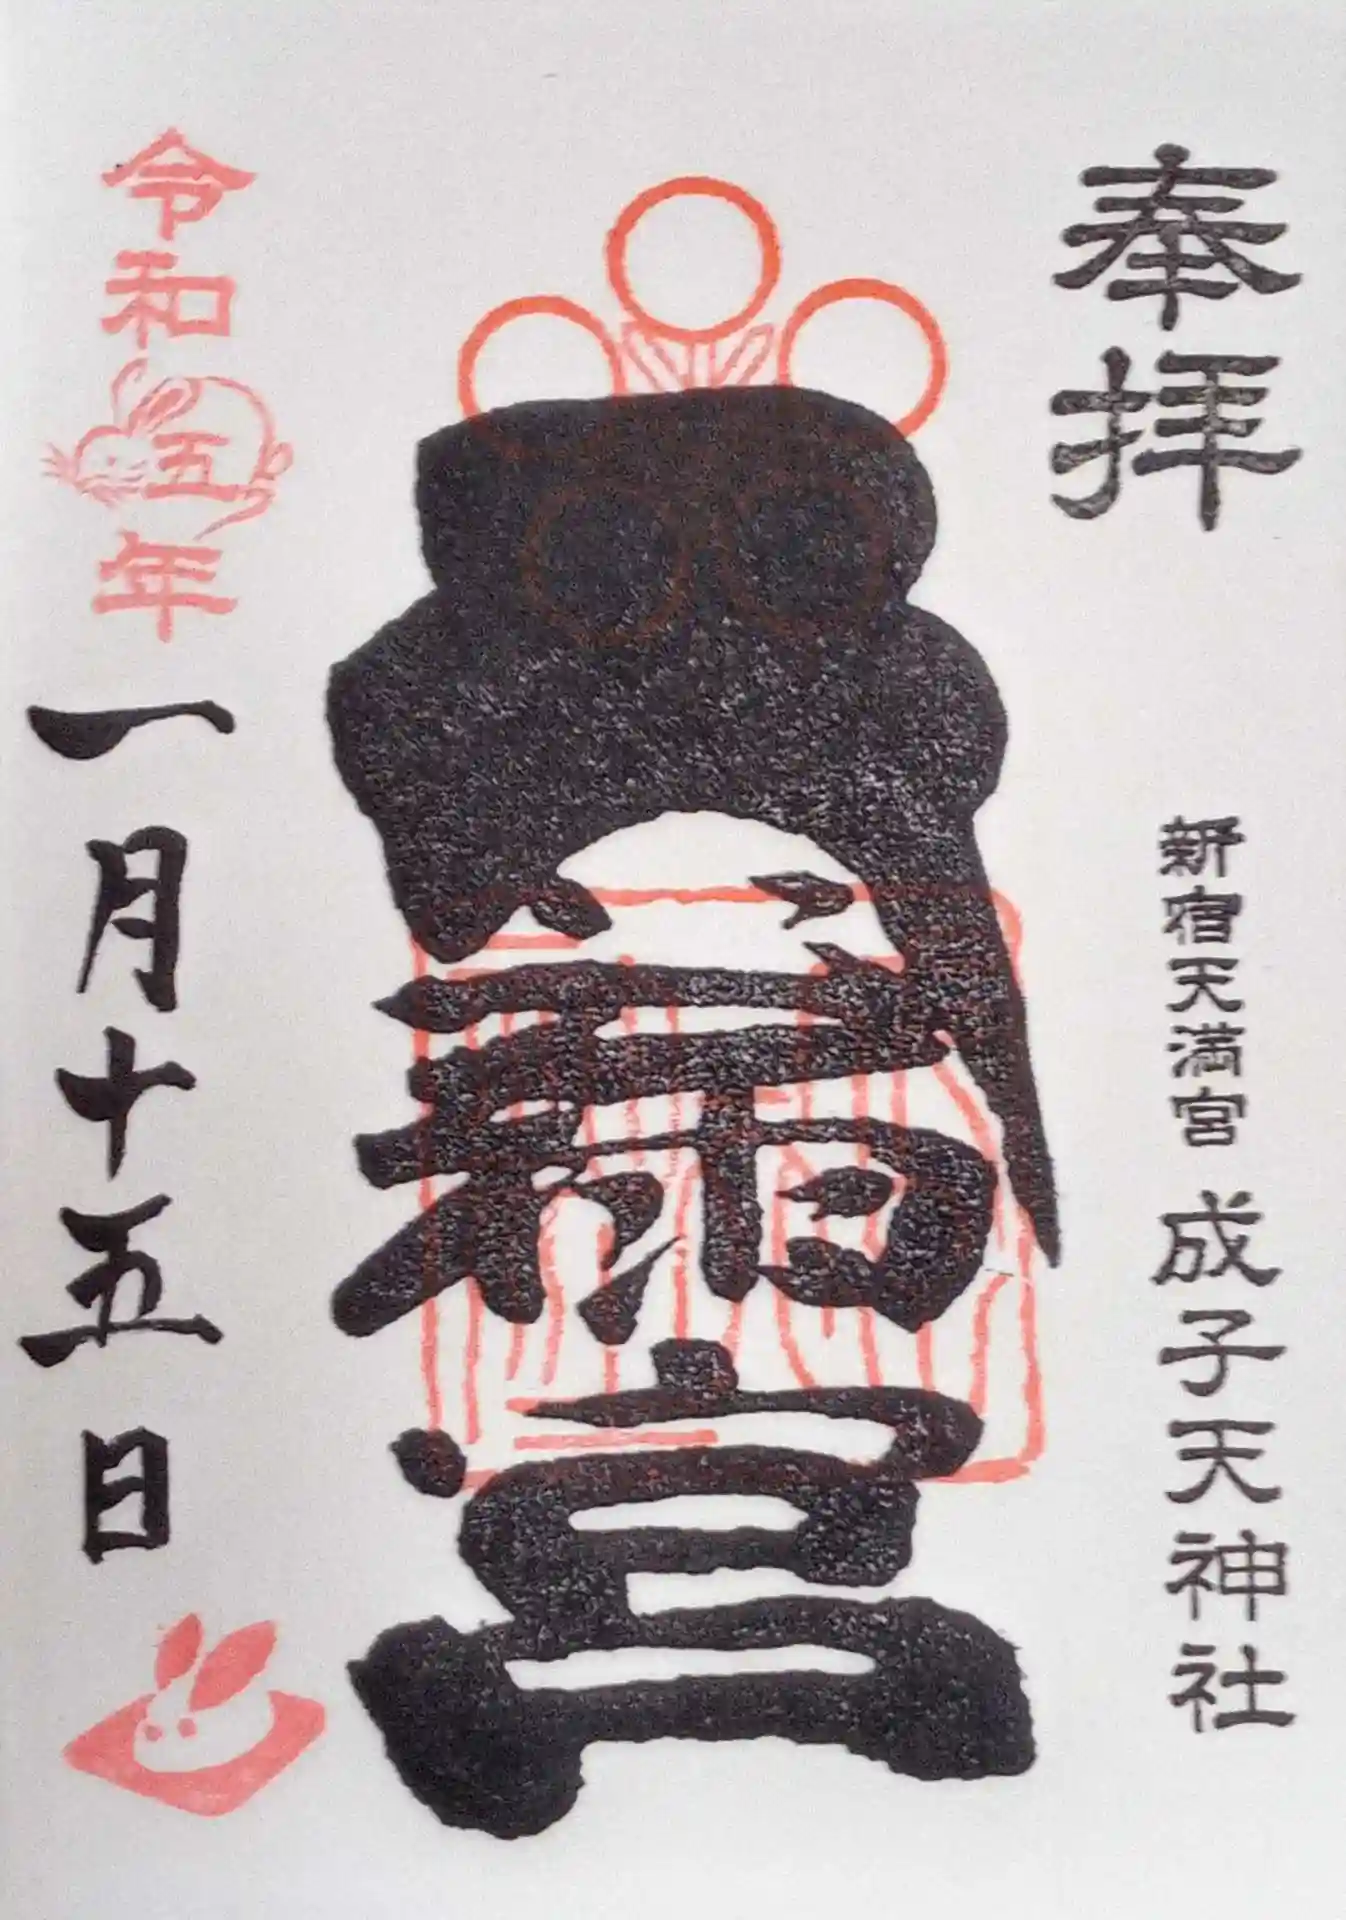 奉拝
新宿天満宮 成子天神社
天満宮
令和五年
一月十五日